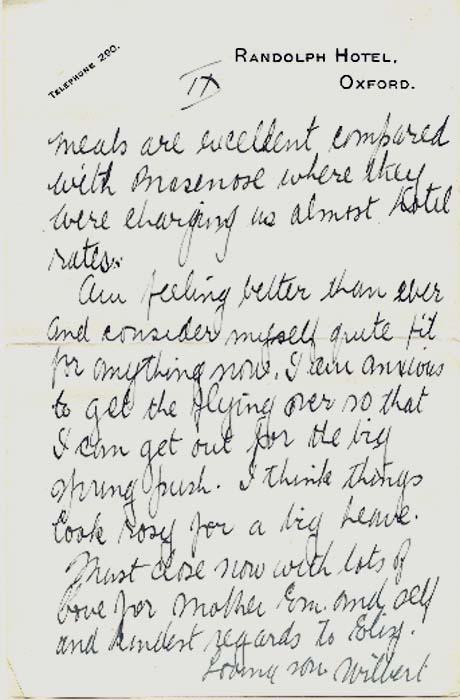 TELEPHONE 290.
RANDOLPH HOTEL,
OXFORD.
IX
meals are excellent compared
with Brasenose where they
were charging us almost Hotel
rates.
Am feeling better than ever
and consider myself quite fit
for anything now. I am anxious
to get the flying over so that
I can get out for the big
spring push. I think things
look rosy for a big heave.
Must close now with lots of
love for Mother Em. and self
and kindest regards to Eliz.
Loving son Wilbert